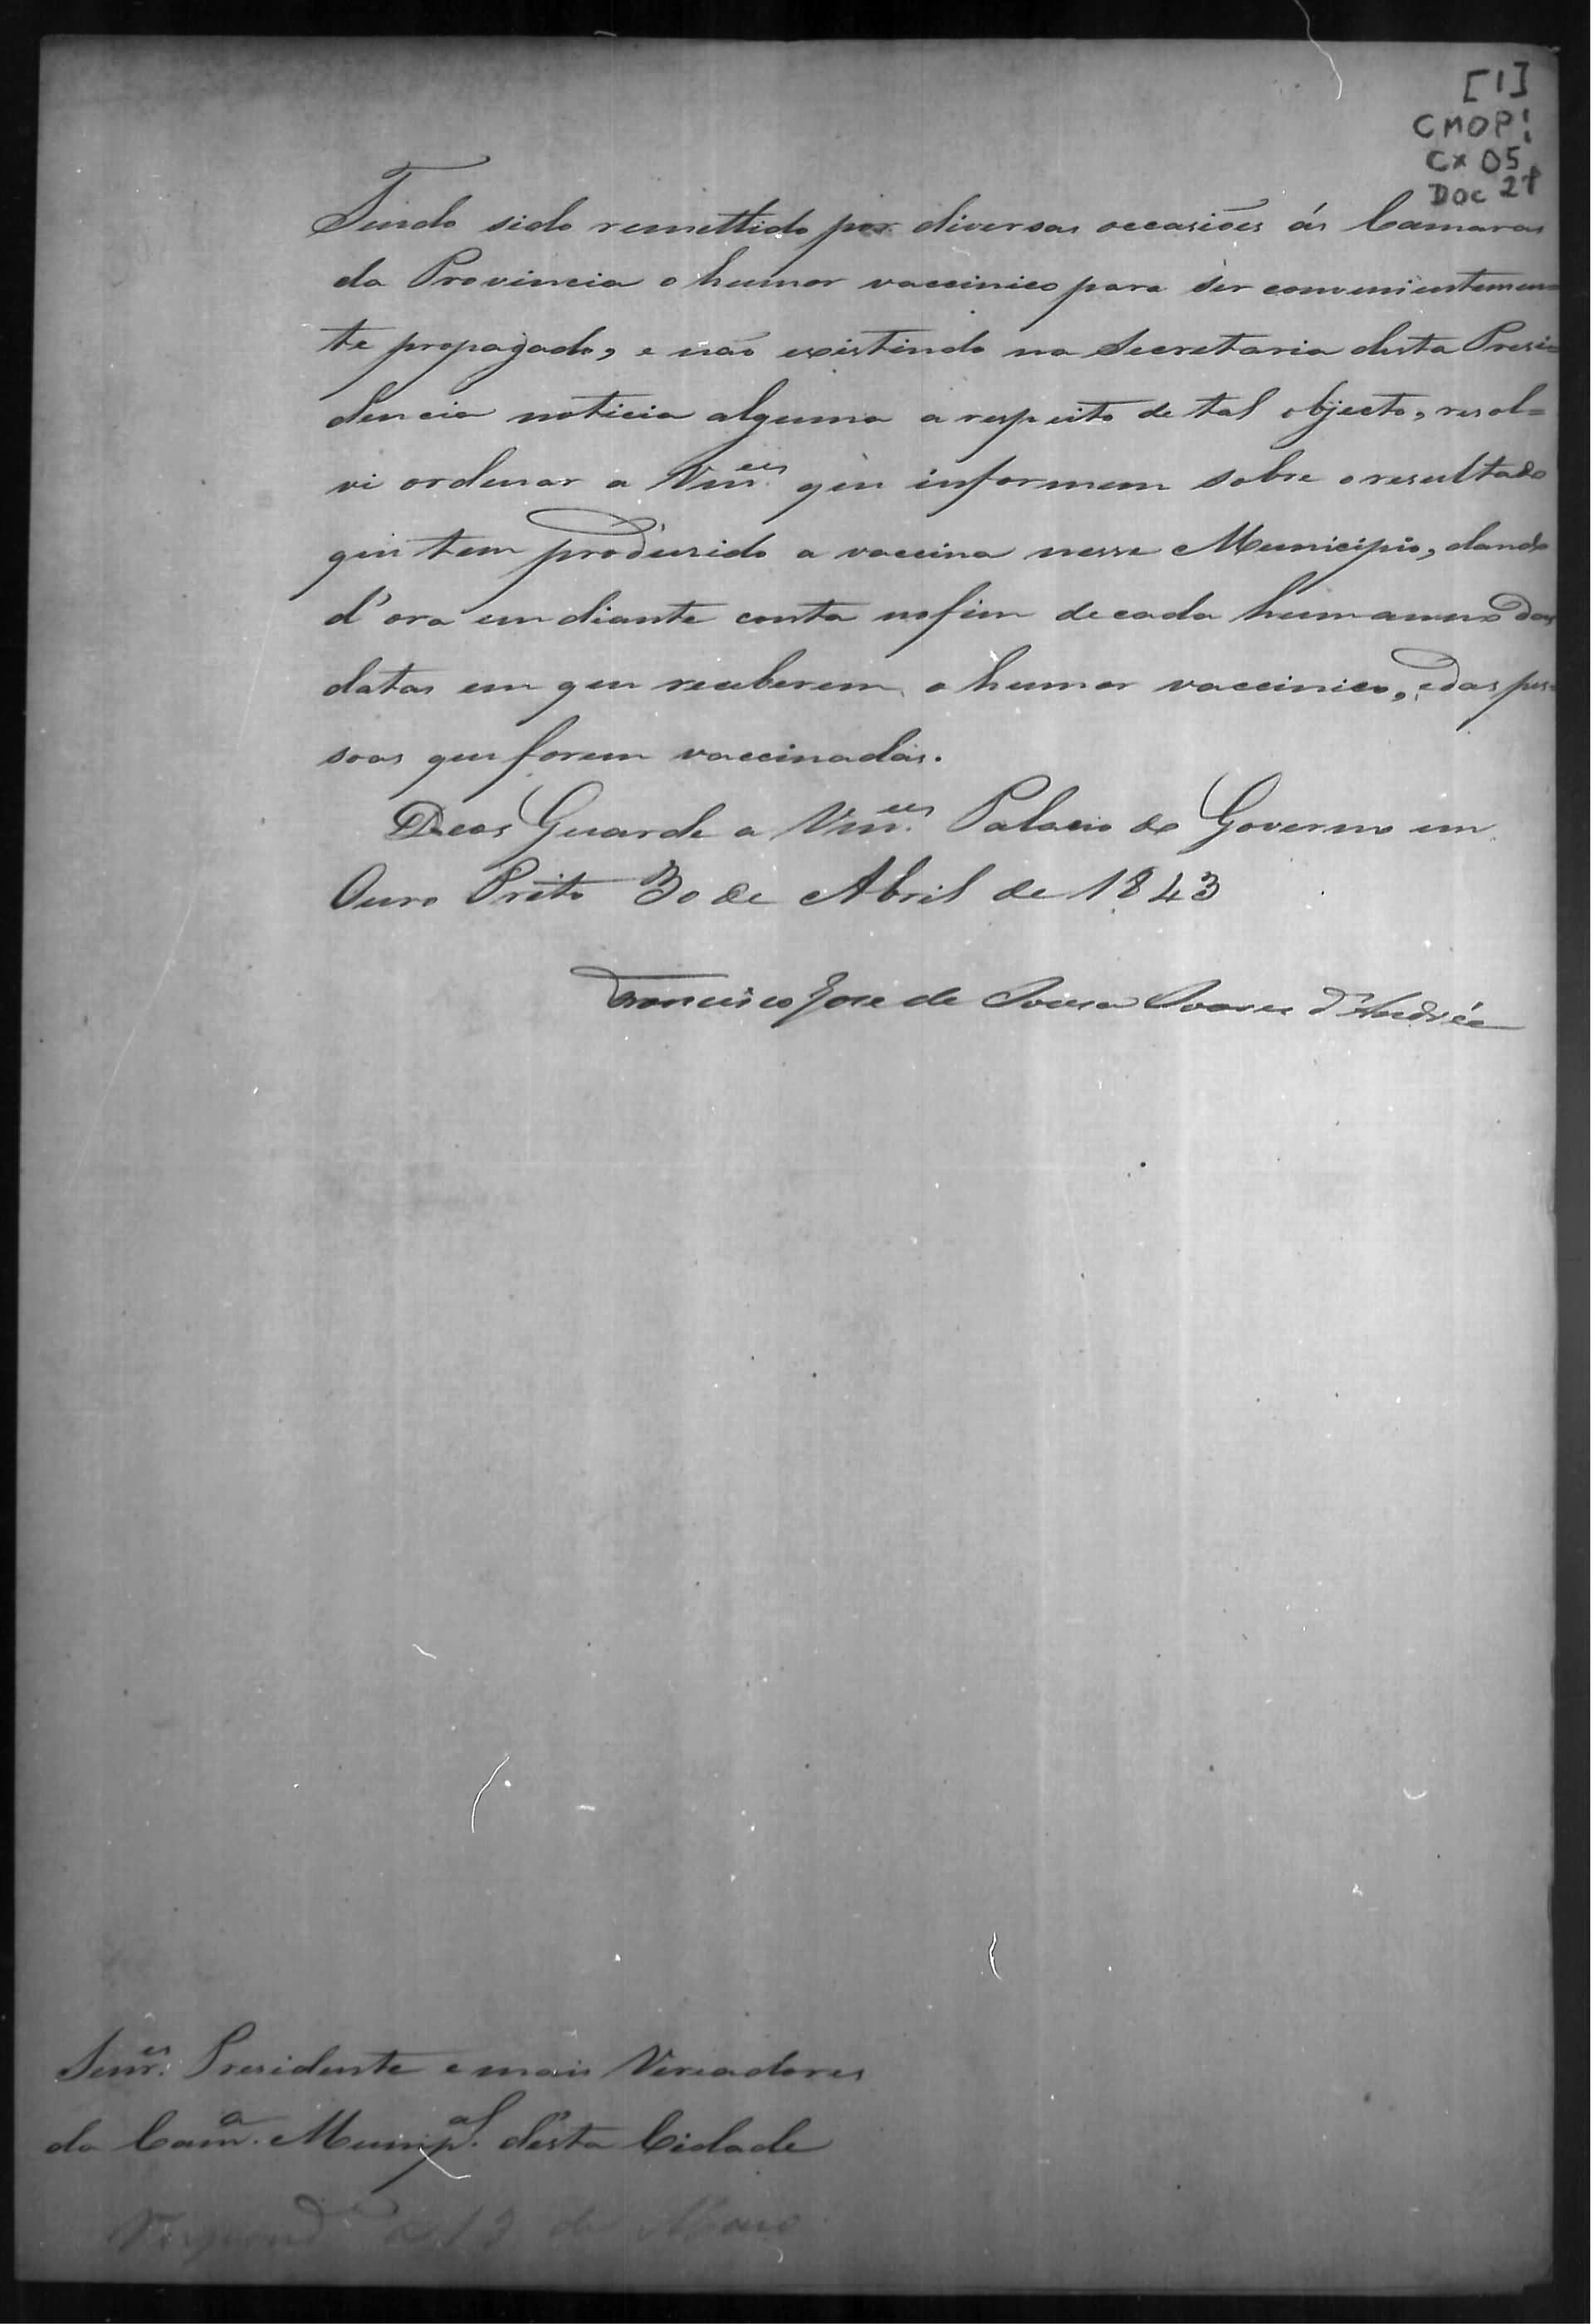 [1]
CMOP:
CX 05
DOC 28
Tendo sido remettido por diversas occasiões ás Camaras
da Provincia o humor vaccinico para ser convenientemen=
te propagado, e não existindo na Secretaria desta Presi=
dencia noticia alguma a respeito de tal objecto, resol=
vi ordenar a Vm.ces que informem sobre o resultado
que tem produsido a vaccina nesse Municipio, dando
d'ora em diante conta no fim de cada hum anno das
datas em que receberem o humor vaccinico, e das pes=
soas que forem vaccinadas.
Deos Guarde a Vm.ces Palacio do Governo em
Ouro Preto 30 de Abril de 1843
Francisco Jose de Sousa Soares d'Andréa
Senr.es Presidente e mais Vereadores
da Cam.a Municip.al desta Cidade
13 de Maio